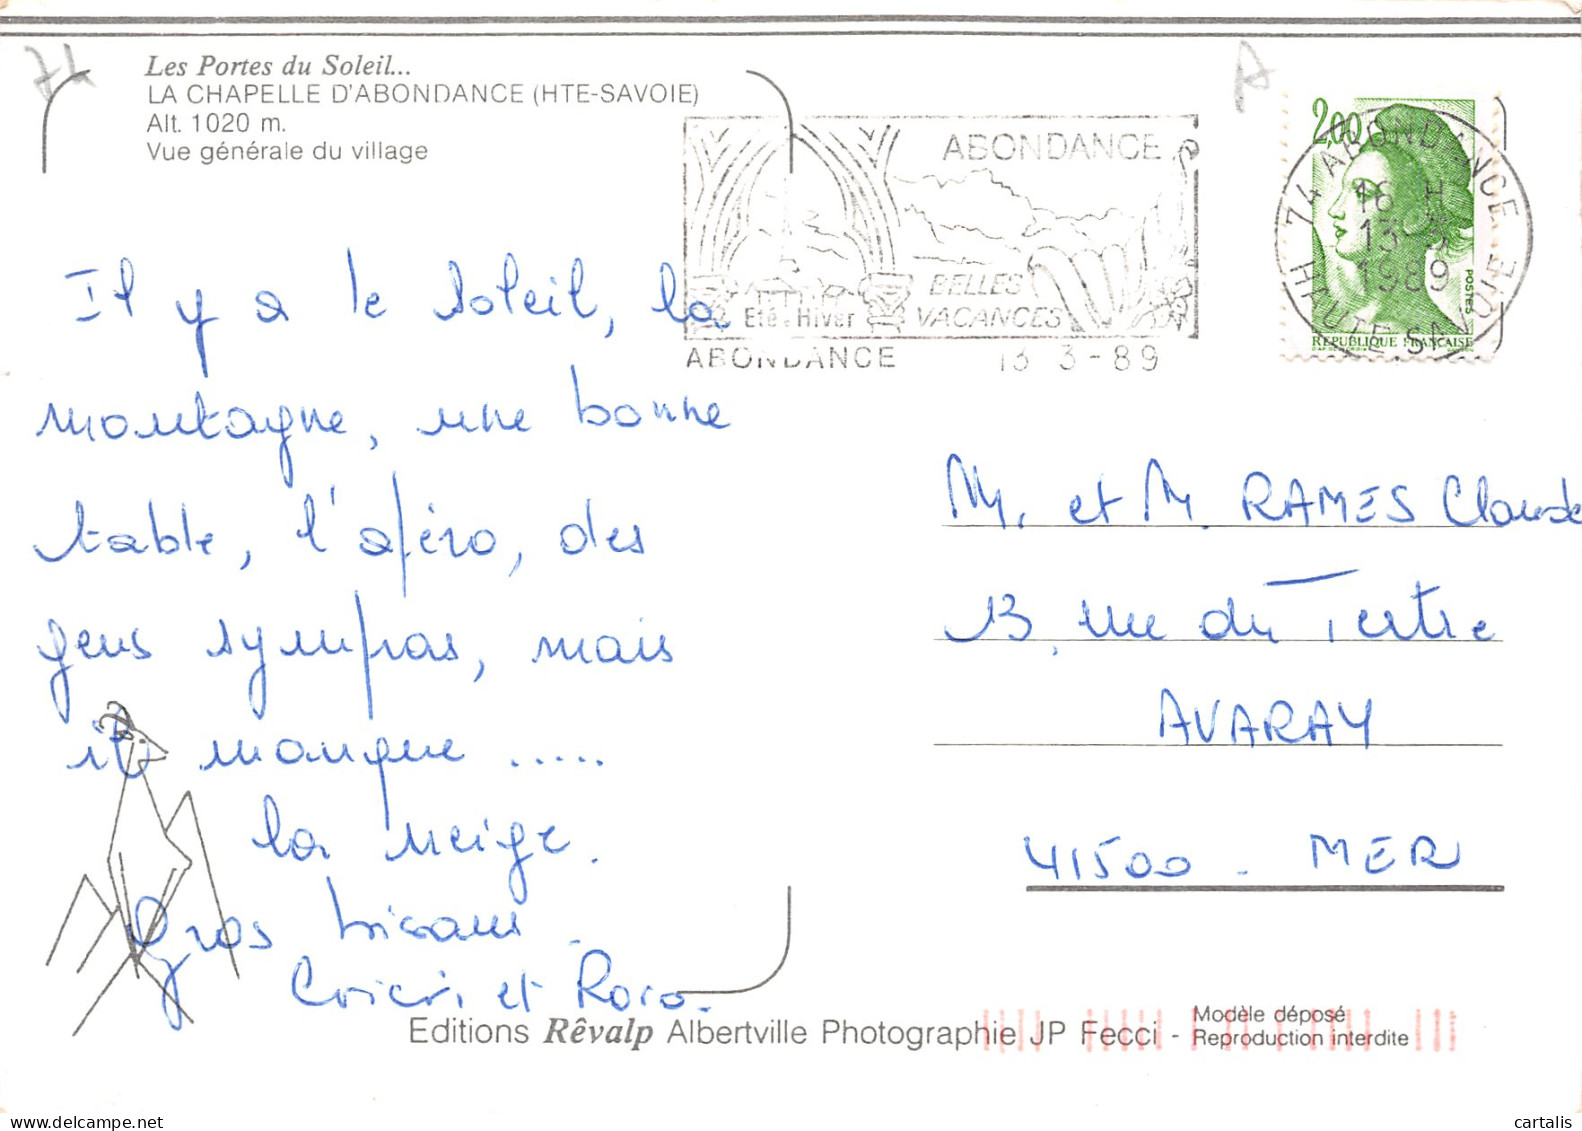 74
A
Les Portes du Soleil...
LA CHAPELLE D'ABONDANCE (HTE-SAVOIE)
Alt. 1020 m.
Vue générale du village
ABONDANCE
BELLES
VACANCES
Eté - Hiver
ABONDANCE 13 3-89
2,00
74 ABONDANCE
16 H
13 3
1989
HAUTE-SAVOIE
POSTES
REPUBLIQUE FRANÇAISE
Il y a le soleil, la
montagne, une bonne
table, l'apéro, des
gens sympas, mais
il manque .....
la neige.
Gros bisous.
Cricri et Roro.
M. et M. RAMES Claude
13, rue du Tertre
AVARAY
41500 - MER
Editions Rêvalp Albertville Photographie JP Fecci -
Modèle déposé
Reproduction interdite
cartalis